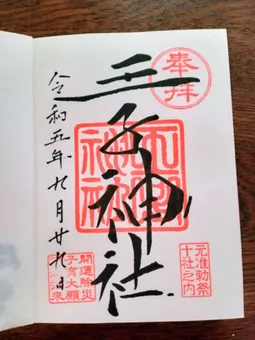 奉拝
元准勅祭
十社之内
王子神社
開運除災
子育大願
令和五年九月廿九日